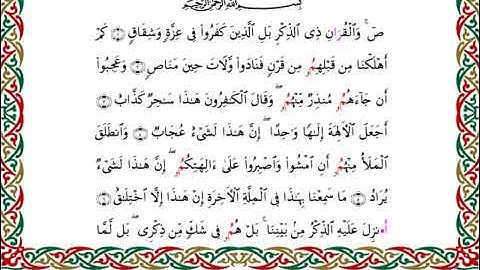 بِسْمِ اللَّهِ الرَّحْمَٰنِ الرَّحِيمِ
صٓ ۚ وَالْقُرَانِ ذِى الذِّكْرِ بَلِ الَّذِينَ كَفَرُواْ فِى عِزَّةٍ وَشِقَاقٍ ۝ كَمْ
أَهْلَكْنَا مِن قَبْلِهِمُۥ مِن قَرْنٍ فَنَادَواْ وَّلَاتَ حِينَ مَنَاصٍ ۝ وَعَجِبُواْ
أَن جَآءَهُمُۥ مُنذِرٌ مِّنْهُمُۥ ۖ وَقَالَ الْكَٰفِرُونَ هَٰذَا سَٰحِرٌ كَذَّابٌ ۝
أَجَعَلَ الْأَلِهَةَ إِلَٰهًا وَٰحِدًا ۖ إِنَّ هَٰذَا لَشَىْءٌ عُجَابٌ ۝ وَانطَلَقَ
الْمَلَأُ مِنْهُمُۥ أَنِ امْشُواْ وَاصْبِرُواْ عَلَىٰٓ ءَالِهَتِكُمُۥ ۖ إِنَّ هَٰذَا لَشَىْءٌ
يُرَادُ ۝ مَا سَمِعْنَا بِهَٰذَا فِى الْمِلَّةِ الْأَخِرَةِ إِنْ هَٰذَا إِلَّا اخْتِلَٰقٌ ۝
أَ۟نزِلَ عَلَيْهِ الذِّكْرُ مِنۢ بَيْنِنَا ۚ بَلْ هُمُۥ فِى شَكٍّ مِّن ذِكْرِى ۖ بَل لَّمَّا